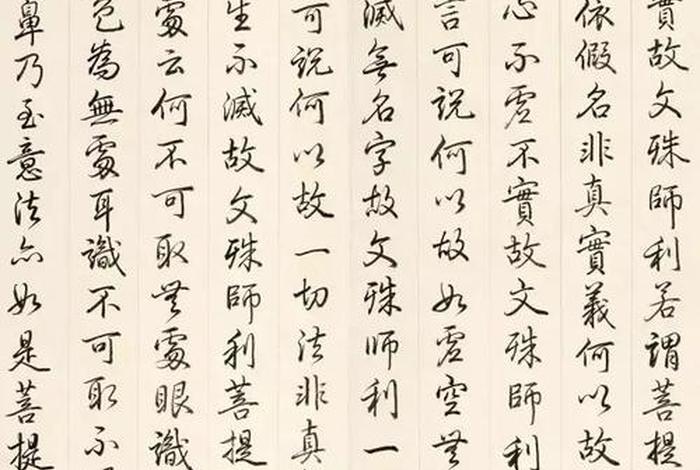 實故文殊師利若謂菩提
依假名非真實義何以故
心不虛不實故文殊師利
言可說何以故如虛空無
滅無名字故文殊师利一
可說何以故一切法非真
生不滅故文殊師利菩提
處云何不可取無處眼識
色為無處耳識不可取不
鼻乃至意法亦如是菩提